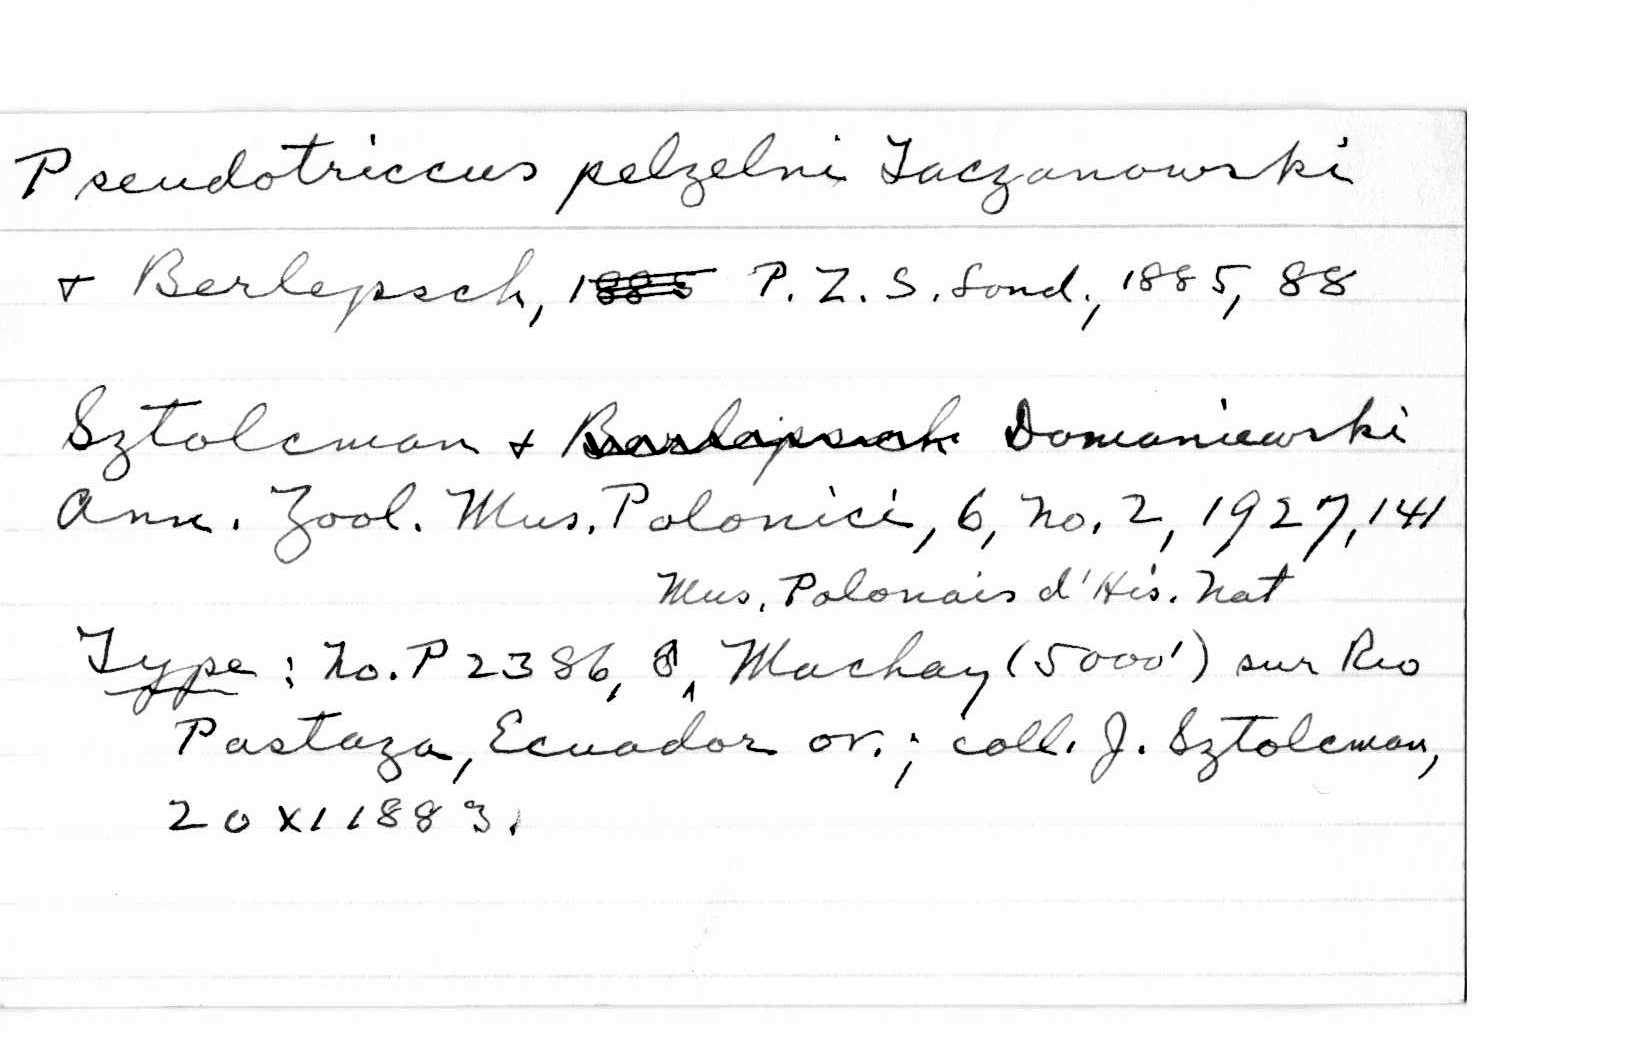 Pseudotriccus pelzelni Taczanowski
+ Berlepsch, 1885 P. Z. S. Lond., 1885, 88
Sztolcman + Berlepsch Domaniewski
Ann. Zool. Mus. Polonici, 6, no. 2, 1927, 141
Mus. Polonais d'His. Nat
Type: No. P 2386, ‸ Machay (5000') sur Rio
Pastaza, Ecuador or.; coll. J. Sztolcman,
20 XI 1883.